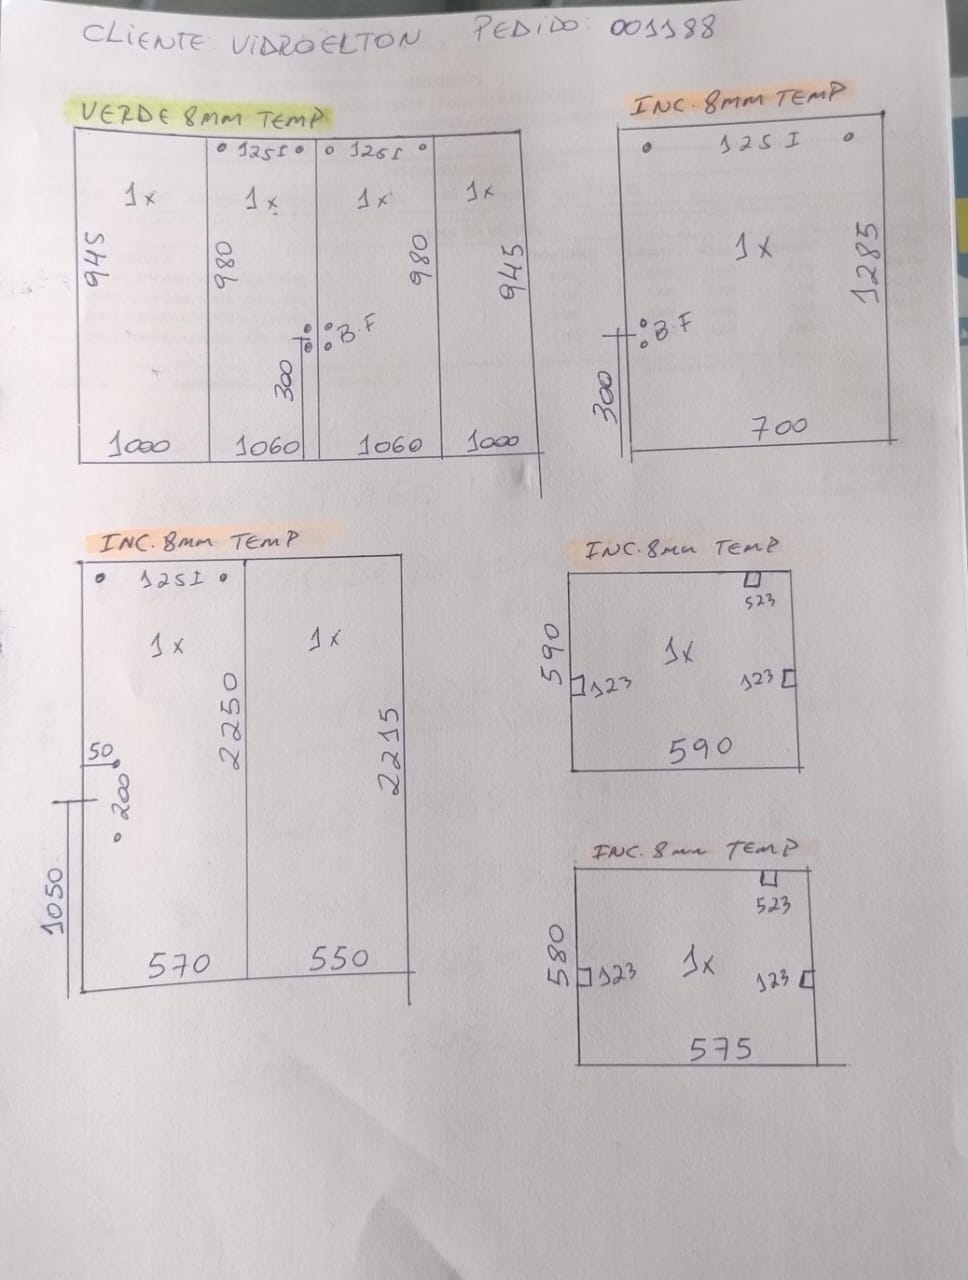 CLIENTE: VIDROELTON PEDIDO: 001188
VERDE 8MM TEMP
125I 125I
1x 1x 1x 1x
945 980 980 945
B.F
300
1000 1060 1060 1000
INC. 8MM TEMP
125I
1x
1285
B.F
300
700
INC. 8MM TEMP
125I
1x 1x
2250 2215
50
200
1050
570 550
INC. 8MM TEMP
523
590 1x
123 123
590
INC. 8MM TEMP
523
580 1x
123 123
575